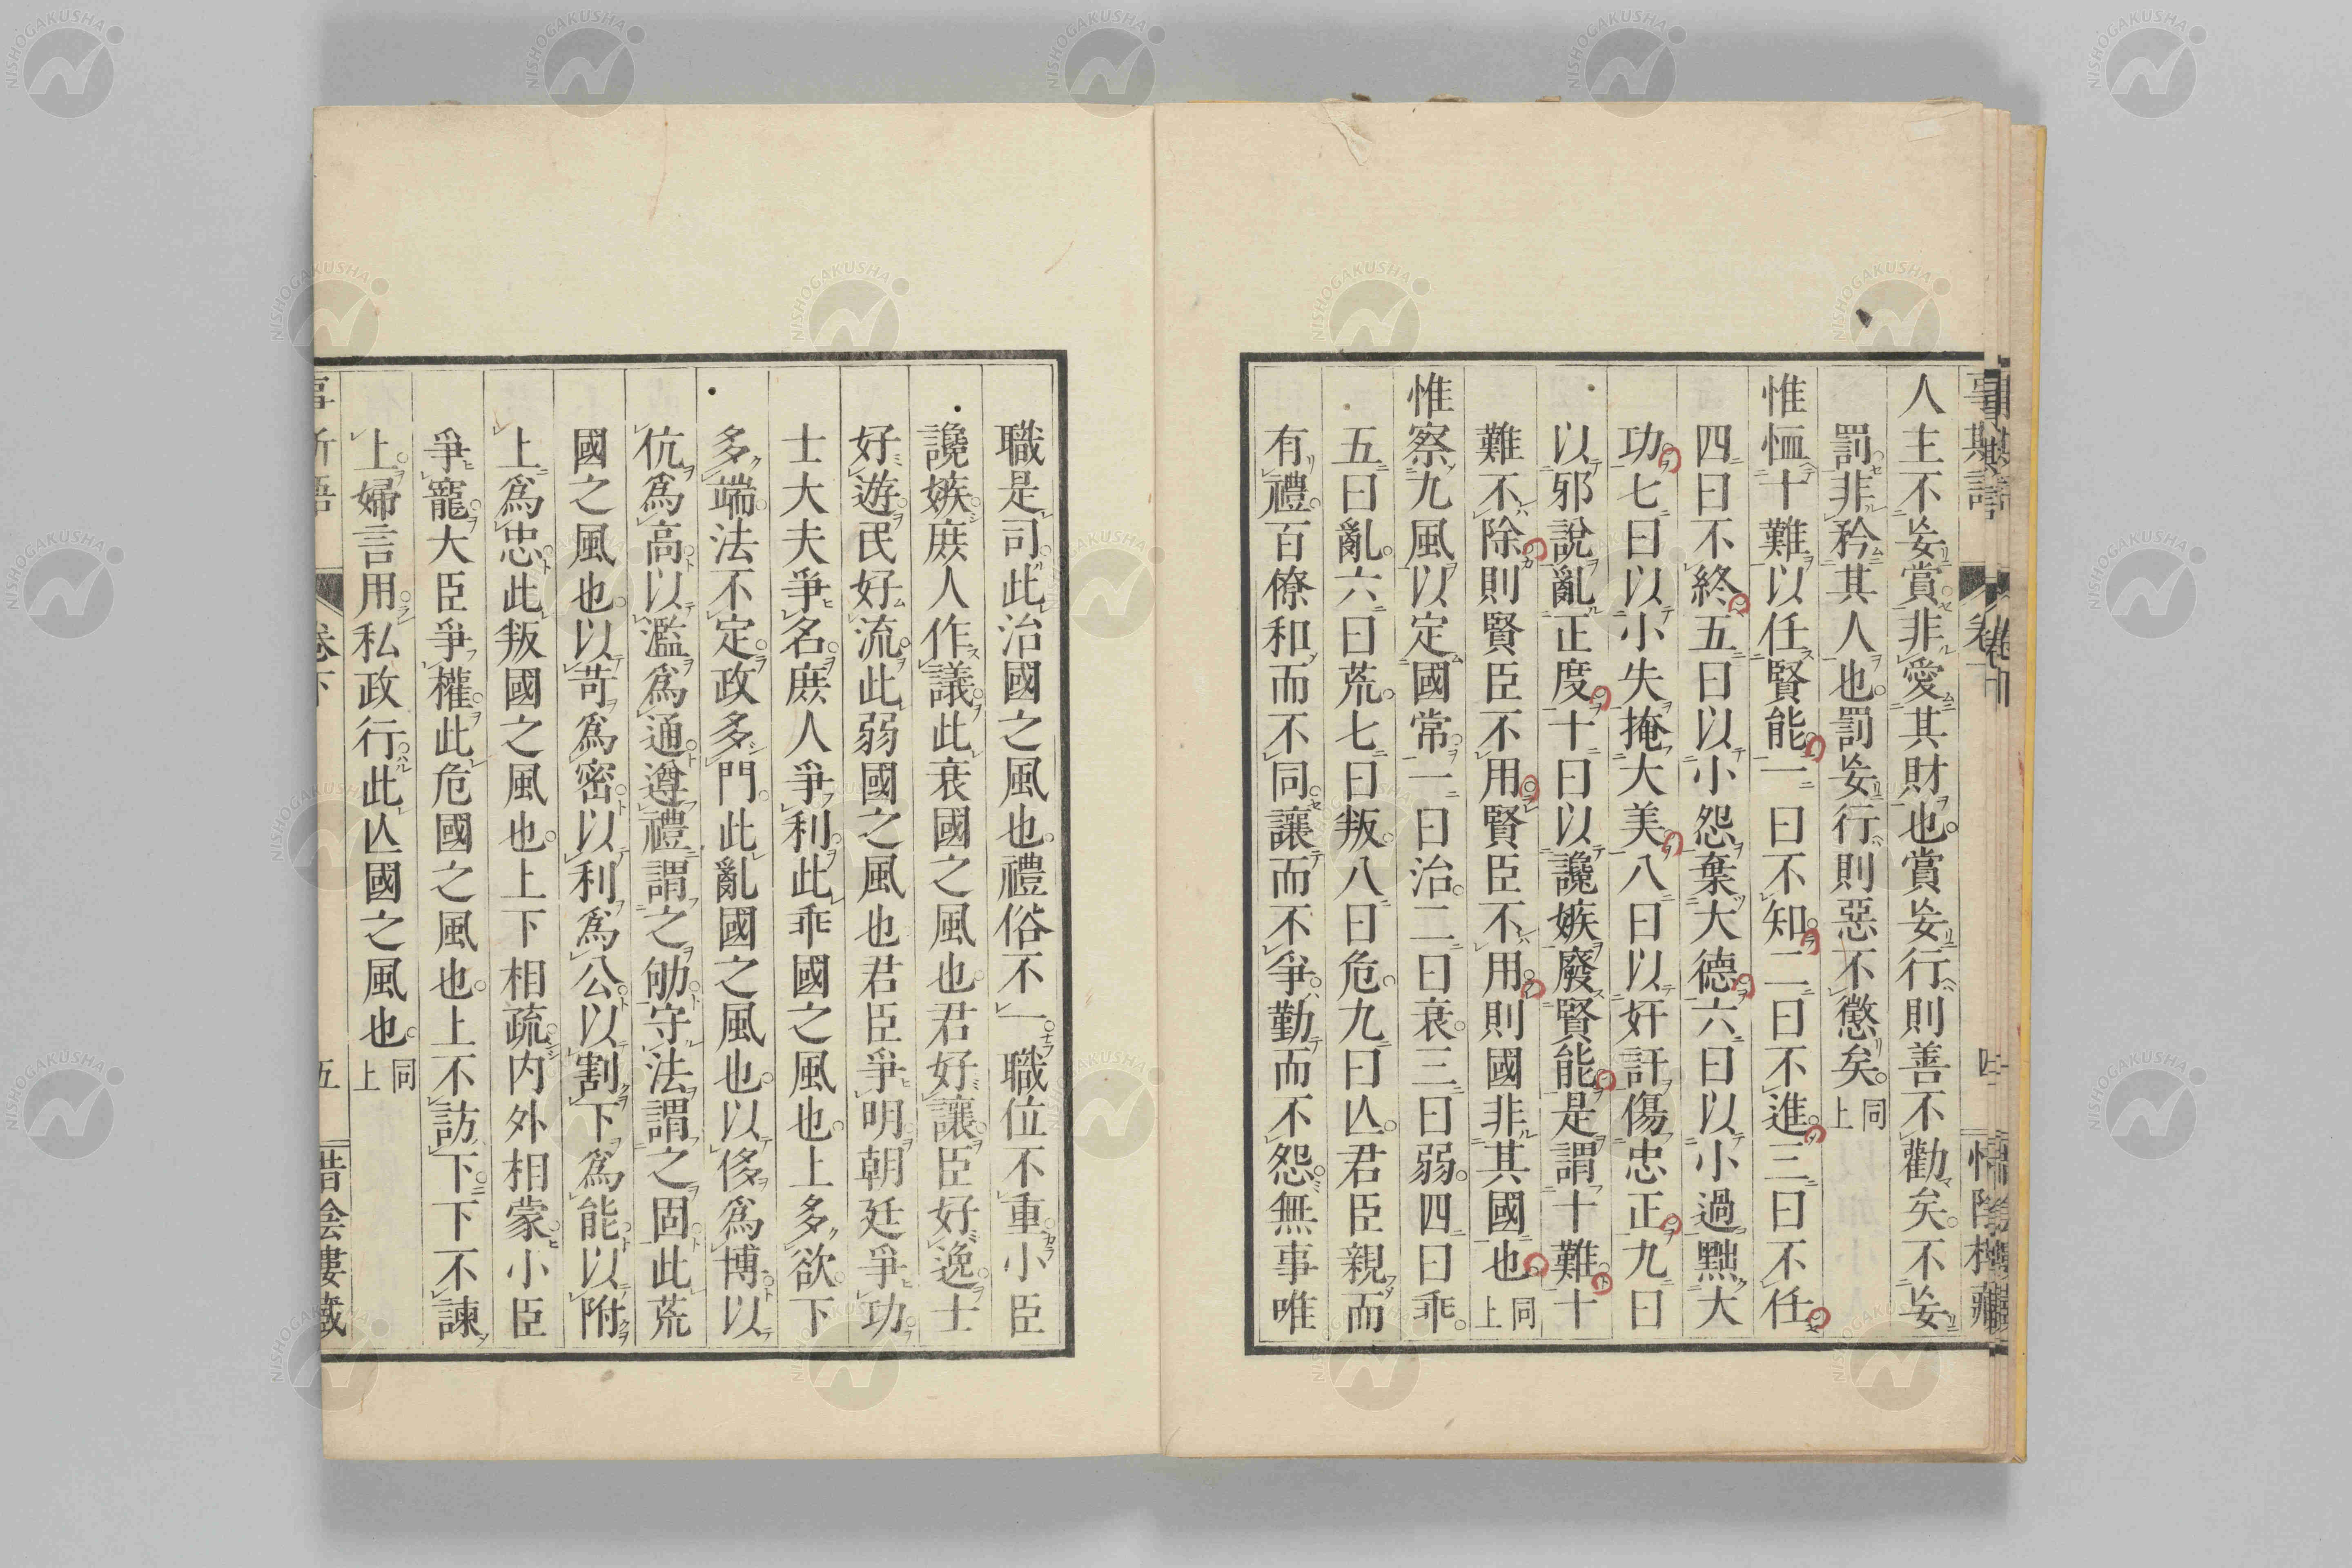 人主不妄賞非愛其財也賞妄行則善不勸矣不妄
罰非矜其人也罰妄行則惡不懲矣同上
惟恤十難以任賢能一曰不知二曰不進三曰不任
四曰不終五曰以小怨棄大德六曰以小過黜大
功七曰以小失掩大美八曰以奸訐傷忠正九曰
以邪說亂正度十曰以讒嫉廢賢能是謂十難十
難不除則賢臣不用賢臣不用則國非其國也同上
惟察九風以定國常一曰治二曰衰三曰弱四曰乖
五曰亂六曰荒七曰叛八曰危九曰亾君臣親而
有禮百僚和而不同讓而不爭勤而不怨無事唯
職是司此治國之風也禮俗不一職位不重小臣
讒嫉庻人作議此衰國之風也君好讓臣好逸士
好遊民好流此弱國之風也君臣爭明朝廷爭功
士大夫爭名庻人爭利此乖國之風也上多欲下
多端法不定政多門此亂國之風也以侈爲博以
伉爲高以濫爲通遵禮謂之劬守法謂之固此荒
國之風也以苛爲密以利爲公以割下爲能以附
上爲忠此叛國之風也上下相疏內外相蒙小臣
爭寵大臣爭權此危國之風也上不訪下下不諫
上婦言用私政行此亾國之風也同上
卷下
五
惜陰樓藏
NISHOGAKUSHA